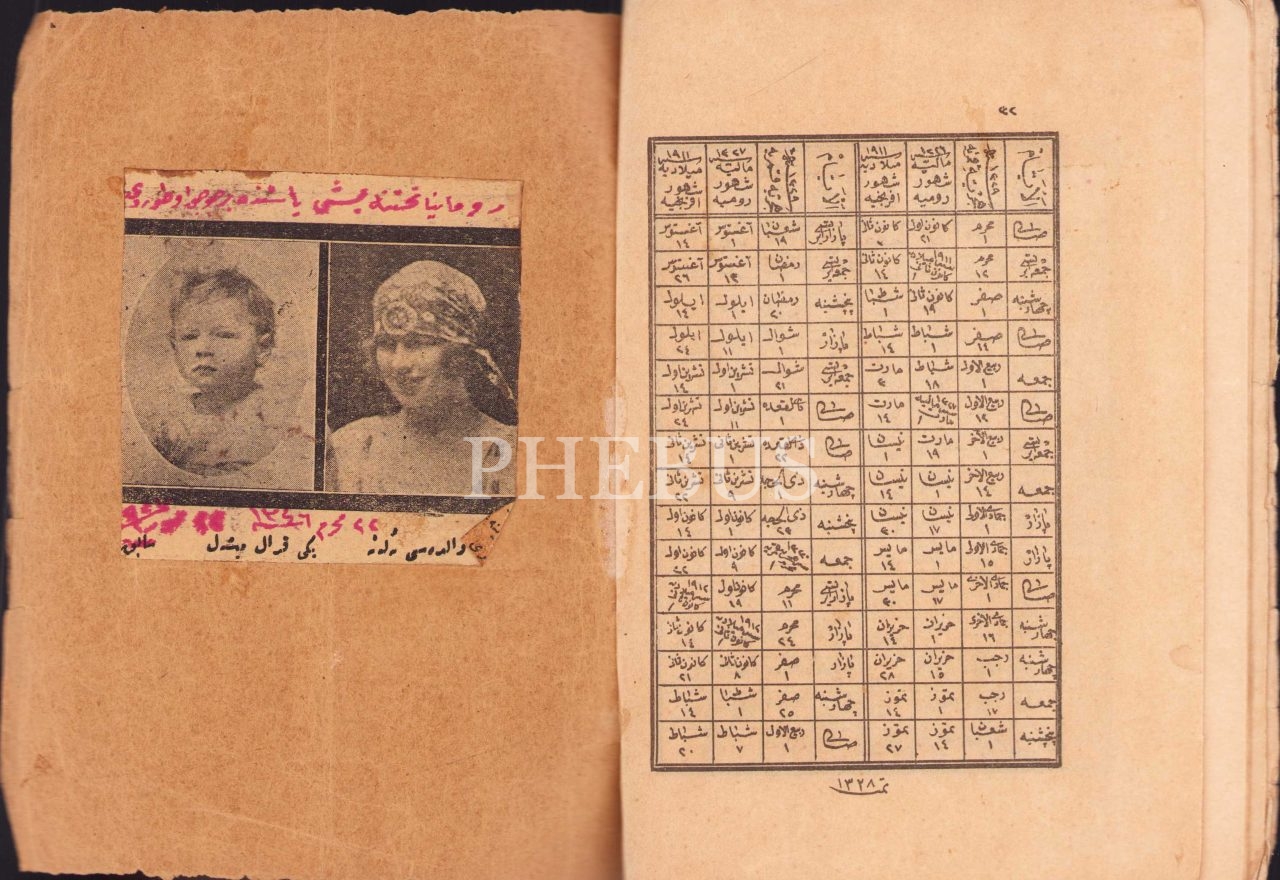 رومانيا تختنه كچمشى ياشنده بر چوجق اوطوردى
٢٢ محرم سنه ١٣٤٦
والده‌سى ئله‌ن يكى قرال ميشه‌ل
PHEBUS
٣٢
صالى محرم ١ كانون اول ٢١ كانون ثانى ٣ پازارايرتسى شعبان ١٩ آغستوس ١ آغستوس ١٤
جمعه ايرتسى محرم ١٢ كانون ثانى ١ كانون ثانى ١٤ جمعه ايرتسى رمضان ١ آغستوس ١٣ آغستوس ٢٦
چهارشنبه صفر ١ كانون ثانى ١٩ شباط ١ پنجشنبه رمضان ٢٠ ايلول ١ ايلول ١٤
صالى صفر ١٤ شباط ١ شباط ١٤ پازار شوال ١ ايلول ١١ ايلول ٢٤
جمعه ربيع الاول ١ شباط ١٨ مارت ٣ جمعه ايرتسى شوال ٢١ تشرين اول ١ تشرين اول ١٤
صالى ربيع الاول ١٢ مارت ١ مارت ١٤ صالى ذى القعده ١ تشرين اول ١١ تشرين اول ٢٤
جمعه ايرتسى ربيع الآخر ١ مارت ١٩ نيسان ١ صالى ذى القعده ٢٢ تشرين ثانى ١ تشرين ثانى ١٤
جمعه ربيع الآخر ١٤ نيسان ١ نيسان ١٤ چهارشنبه ذى الحجه ١ تشرين ثانى ٩ تشرين ثانى ٢٢
پازار جمادى الاولى ١ نيسان ١٧ نيسان ٣٠ پنجشنبه ذى الحجه ٢٣ كانون اول ١ كانون اول ١٤
پازار جمادى الاولى ١٥ مايس ١ مايس ١٤ جمعه كانون اول ٩ كانون اول ٢٢
صالى جمادى الاخرى ١ مايس ١٧ مايس ٣٠ پازارايرتسى محرم ١١ كانون اول ١٩
چهارشنبه جمادى الاخرى ١٦ حزيران ١ حزيران ١٤ پازار محرم ٢٤ كانون ثانى ١٤
چهارشنبه رجب ١ حزيران ١٥ حزيران ٢٨ پازار صفر ١ كانون ثانى ٨ كانون ثانى ٢١
جمعه رجب ١٧ تموز ١ تموز ١٤ چهارشنبه صفر ٢٥ شباط ١ شباط ١٤
پنجشنبه شعبان ١ تموز ١٤ تموز ٢٧ صالى ربيع الاول ١ شباط ٧ شباط ٢٠
تمت ١٣٢٨